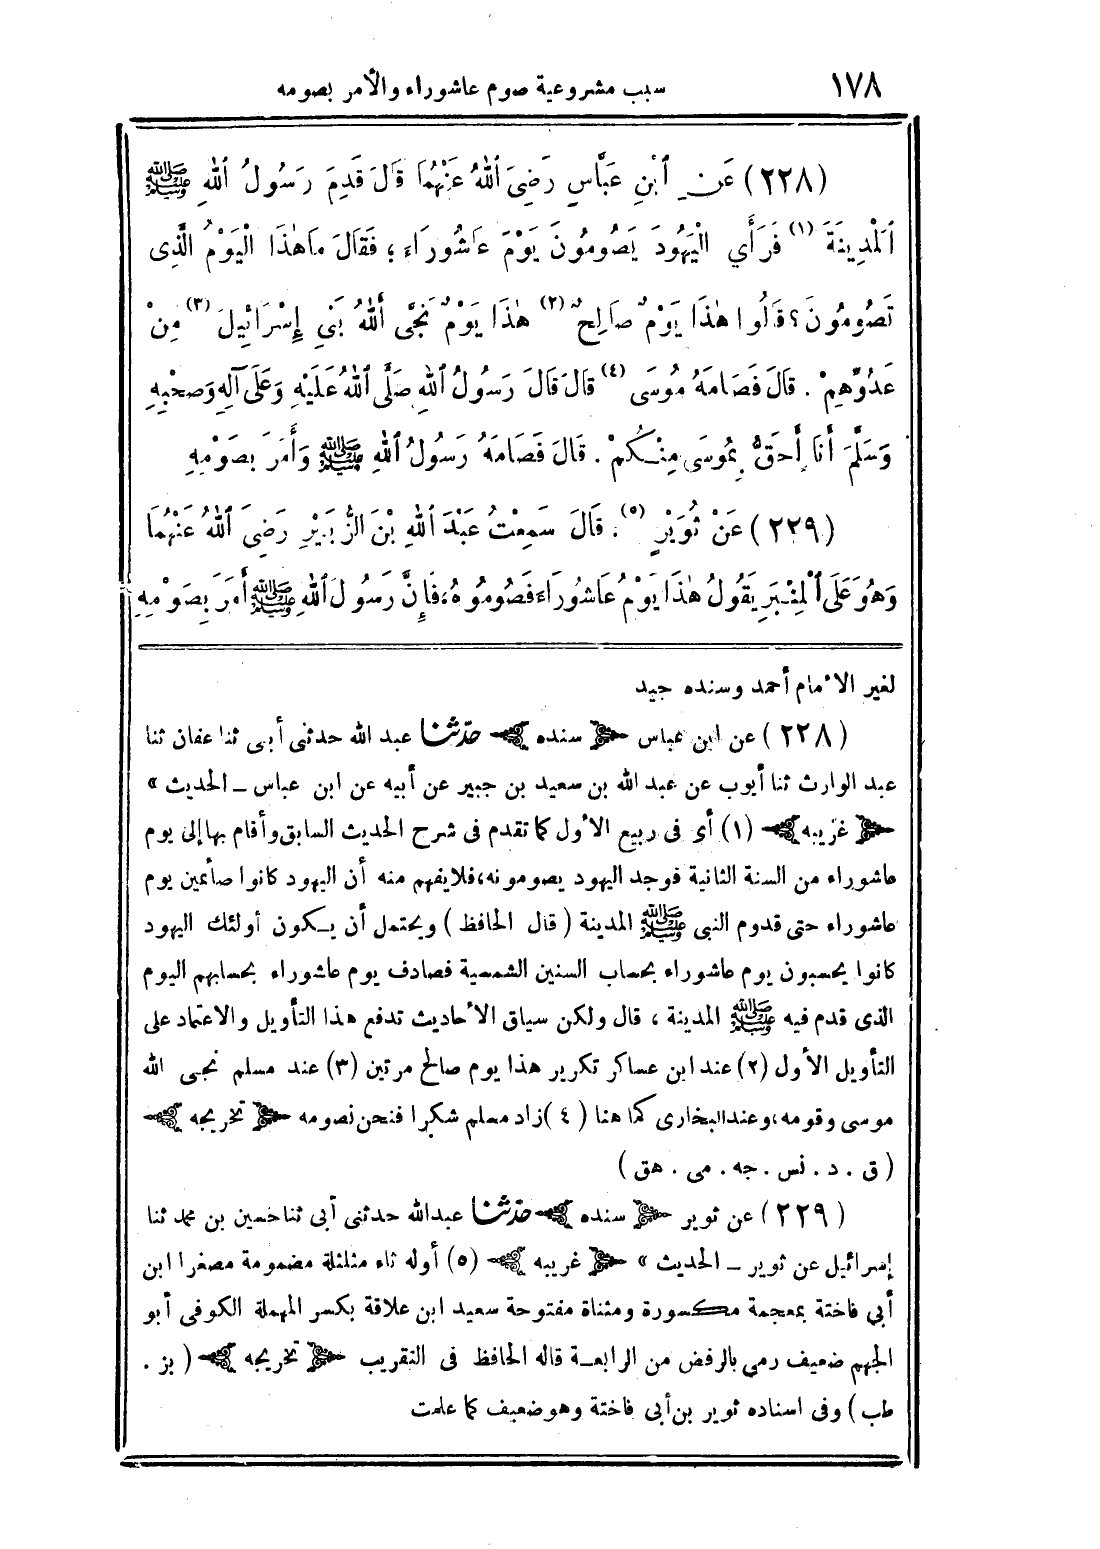 ١٧٨ سبب مشروعية صوم عاشوراء والأمر بصومه
(٢٢٨) عَنِ ٱبْنِ عَبَّاسٍ رَضِيَ ٱللهُ عَنْهُمَا قَالَ قَدِمَ رَسُولُ ٱللهِ ﷺ
ٱلْمَدِينَةَ (١) فَرَأَي الْيَهُودَ يَصُومُونَ يَوْمَ عَاشُورَاءَ ؛ فَقَالَ مَا هٰذَا الْيَوْمُ الَّذِى
تَصُومُونَ ؟ قَالُوا هٰذَا يَوْمٌ صَالِحٌ (٢) هٰذَا يَوْمٌ نَجَّى ٱللهُ بَنِي إِسْرَائِيلَ (٣) مِنْ
عَدُوِّهِمْ . قَالَ فَصَامَهُ مُوسَى (٤) قَالَ قَالَ رَسُولُ ٱللهِ صَلَّى ٱللهُ عَلَيْهِ وَعَلَى آلِهِ وَصَحْبِهِ
وَسَلَّمَ أَنَا أَحَقُّ بِمُوسَى مِنْكُمْ . قَالَ فَصَامَهُ رَسُولُ ٱللهِ ﷺ وَأَمَرَ بِصَوْمِهِ
(٢٢٩) عَنْ ثُوَيْرٍ (٥) . قَالَ سَمِعْتُ عَبْدَ ٱللهِ بْنَ الزُّبَيْرِ رَضِيَ ٱللهُ عَنْهُمَا
وَهُوَ عَلَى ٱلْمِنْبَرِ يَقُولُ هٰذَا يَوْمُ عَاشُورَاءَ فَصُومُوهُ ، فَإِنَّ رَسُولَ ٱللهِ ﷺ أَمَرَ بِصَوْمِهِ
لغير الأمام أحمد وسنده جيد
(٢٢٨) عن ابن عباس ﴿ سنده ﴾ حدّثنا عبد الله حدثنى أبى ثنا عفان ثنا
عبد الوارث ثنا أيوب عن عبد الله بن سعيد بن جبير عن أبيه عن ابن عباس ــ الحديث »
﴿ غريبه ﴾ (١) أى فى ربيع الأول كما تقدم فى شرح الحديث السابق وأقام بها إلى يوم
عاشوراء من السنة الثانية فوجد اليهود يصومونه ، فلا يفهم منه أن اليهود كانوا صائمين يوم
عاشوراء حتى قدوم النبى ﷺ المدينة ( قال الحافظ ) ويحتمل أن يكون أولئك اليهود
كانوا يحسبون يوم عاشوراء بحساب السنين الشمسية فصادف يوم عاشوراء بحسابهم اليوم
الذى قدم فيه ﷺ المدينة ، قال ولكن سياق الأحاديث تدفع هذا التأويل والاعتماد على
التأويل الأول (٢) عند ابن عساكر تكرير هذا يوم صالح مرتين (٣) عند مسلم نجى الله
موسى وقومه ، وعند البخارى كما هنا (٤) زاد مسلم شكرا فنحن نصومه ﴿ تخريجه ﴾
( ق . د . نس . جه . مى . هق )
(٢٢٩) عن ثوير ﴿ سنده ﴾ حدّثنا عبدالله حدثنى أبى ثنا حسين بن محمد ثنا
إسرائيل عن ثوير ــ الحديث » ﴿ غريبه ﴾ (٥) أوله ثاء مثلثة مضمومة مصغرا ابن
أبي فاختة بمعجمة مكسورة ومثناة مفتوحة سعيد ابن علاقة بكسر المهملة الكوفى أبو
الجهم ضعيف رمي بالرفض من الرابعة قاله الحافظ فى التقريب ﴿ تخريجه ﴾ ( بز .
طب ) وفى اسناده ثوير بن أبي فاختة وهو ضعيف كما علمت